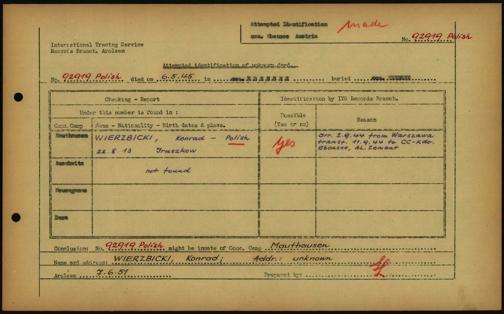 Attempted Identification made
Ebensee Austria
No. 92919 Polish
International Tracing Service
Records Branch, Arolsen
Attempted identification of unknown dead.
No. 92919 Polish died on 6.5.45 in buried
Checking - Report
Identification by ITS Records Branch.
Under this number is found in :
Conc. Camp Name - Nationality - Birth dates & place.
Possible (Yes or no)
Reason
Mauthausen WIERZBICKI, Konrad - Polish
22.8.13 Pruszkow
Yes
arr. 2.9.44 from Warszawa
transf. 11.9.44 to CC-Kdo.
Ebensee, AL. Zement
Auschwitz
not found
Conclusion: No. 92919 Polish might be inmate of Conc. Camp Mauthausen
Name and address: WIERZBICKI, Konrad; Addr.: unknown
Arolsen 7.6.51 Prepared by: